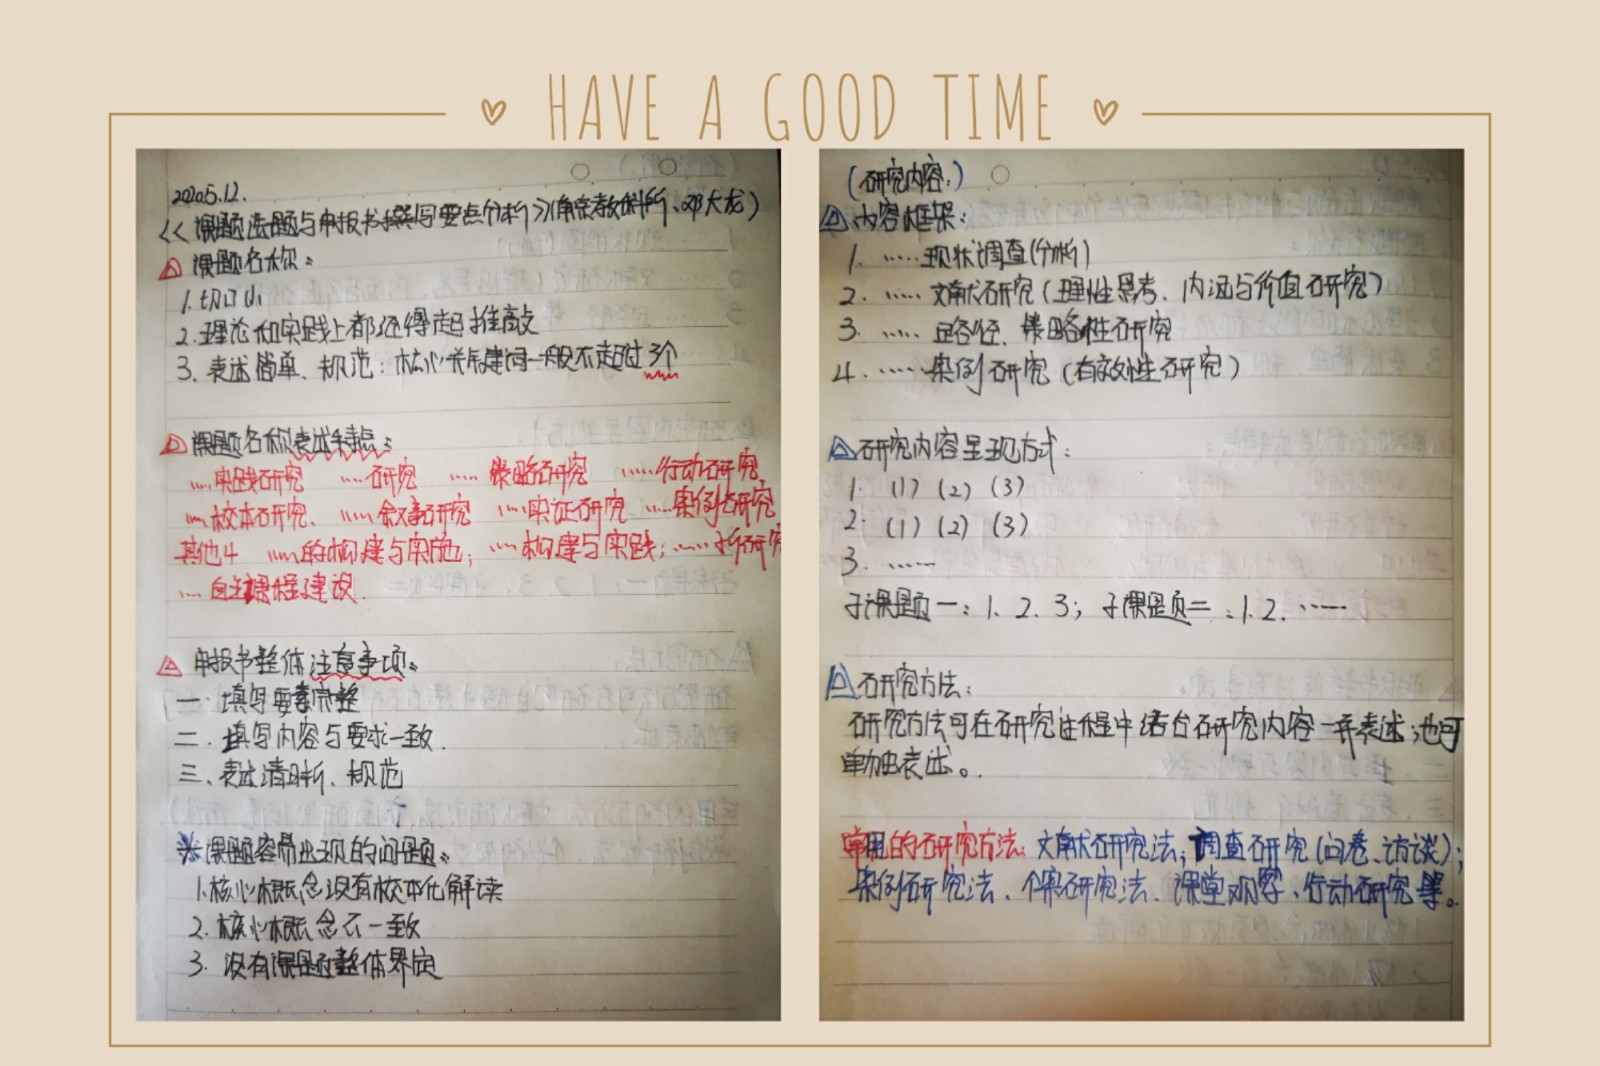 HAVE A GOOD TIME
2020.5.12.
《课题选题与申报书撰写要点分析》(南京教科所、邓大龙)
课题名称:
1. 切口小
2. 理论和实践上都经得起推敲
3. 表述简单、规范:核心关键词一般不超过3个
课题名称表述特点:
……实践研究 ……研究 ……策略研究 ……行动研究
……校本研究、……叙事研究 ……实证研究 ……案例研究
其他4 ……的构建与实施; ……构建与实践; ……研究
……自主课程建设.
申报书整体注意事项:
一. 填写要素完整
二. 填写内容与要求一致.
三、表达清晰、规范
※课题容易出现的问题:
1. 核心概念没有校本化解读
2. 核心概念不一致
3. 没有课题整体界定
(研究内容:)
内容框架:
1. ……现状调查(分析)
2. ……文献研究(理性思考、内涵与价值研究)
3. ……路径、策略性研究
4. ……案例研究(有效性研究)
研究内容呈现方式:
1. (1) (2) (3)
2. (1) (2) (3)
3. ……
子课题一:1. 2. 3; 子课题二:1. 2. ……
研究方法:
研究方法可在研究过程中结合研究内容一并表述;也可
单独表述。
常用的研究方法:文献研究法;调查研究(问卷、访谈);
案例研究法、个案研究法、课堂观察、行动研究等。